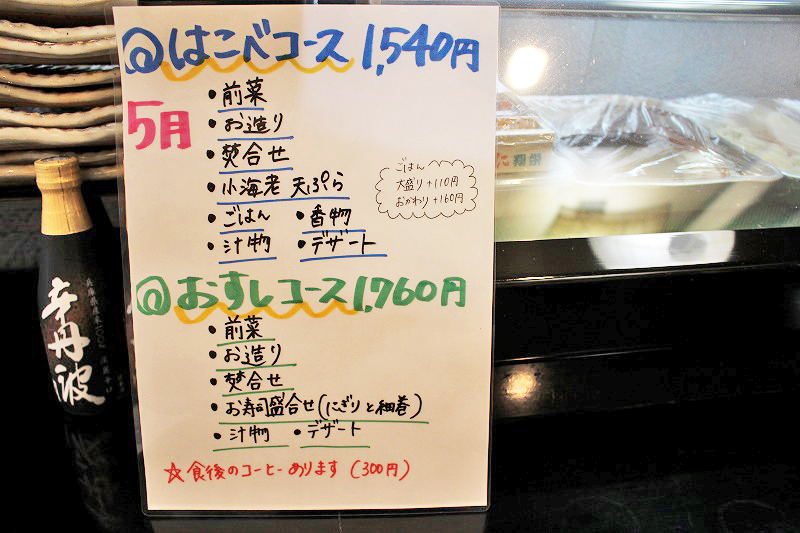 @はこべコース 1,540円
5月
・前菜
・お造り
・焚合せ
・小海老 天ぷら
・ごはん ・香物
・汁物 ・デザート
ごはん
大盛り+110円
おかわり+160円
@おすしコース 1,760円
・前菜
・お造り
・焚合せ
・お寿司盛合せ(にぎりと細巻)
・汁物 ・デザート
☆食後のコーヒーあります(300円)
辛丹波